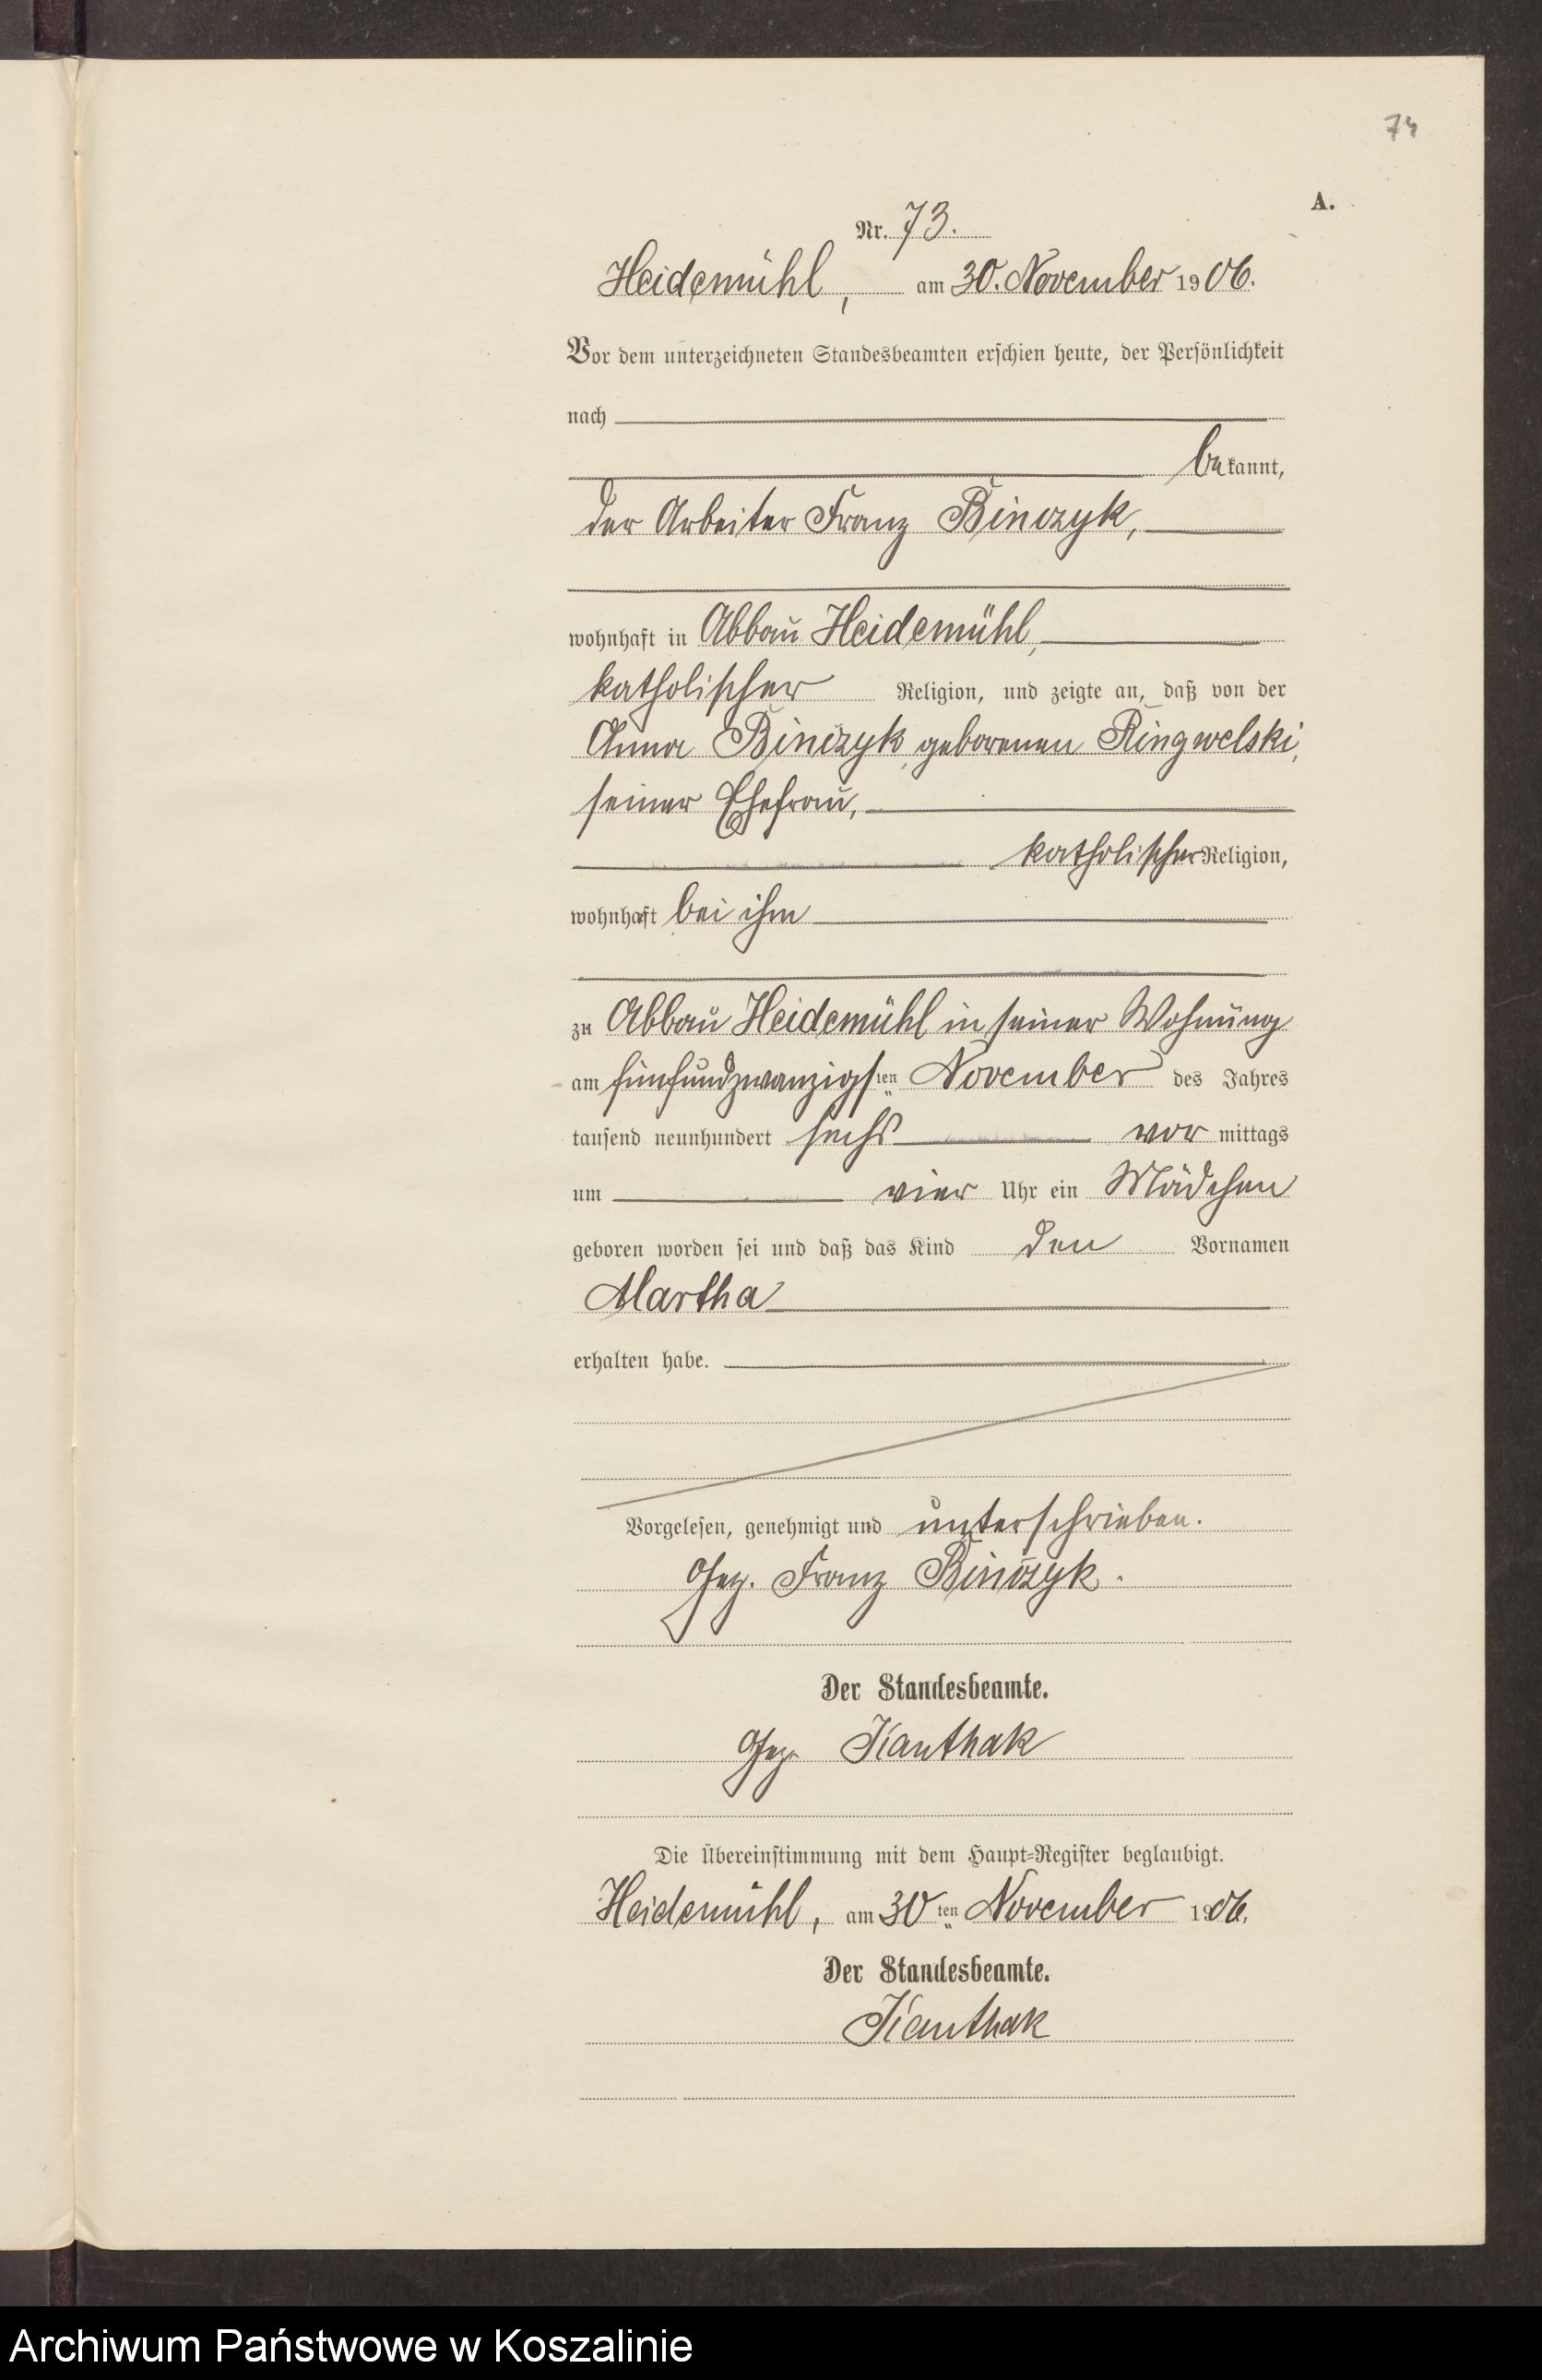 74
A.
Nr. 73.
Heidemühl, am 30. November 1906.
Vor dem unterzeichneten Standesbeamten erschien heute, der Persönlichkeit
nach
bekannt,
der Arbeiter Franz Binczyk,
wohnhaft in Abbau Heidemühl,
katholischer Religion, und zeigte an, daß von der
Anna Binczyk, geborenen Ringwelski,
seiner Ehefrau,
katholischer Religion,
wohnhaft bei ihm
zu Abbau Heidemühl in seiner Wohnung
am fünfundzwanzigsten November des Jahres
tausend neunhundert sechs vor mittags
um vier Uhr ein Mädchen
geboren worden sei und daß das Kind den Vornamen
Martha
erhalten habe.
Vorgelesen, genehmigt und unterschrieben.
Gez. Franz Binczyk.
Der Standesbeamte.
Gez. Kanthak
Die Übereinstimmung mit dem Haupt-Register beglaubigt.
Heidemühl, am 30ten November 1906.
Der Standesbeamte.
Kanthak
Archiwum Państwowe w Koszalinie